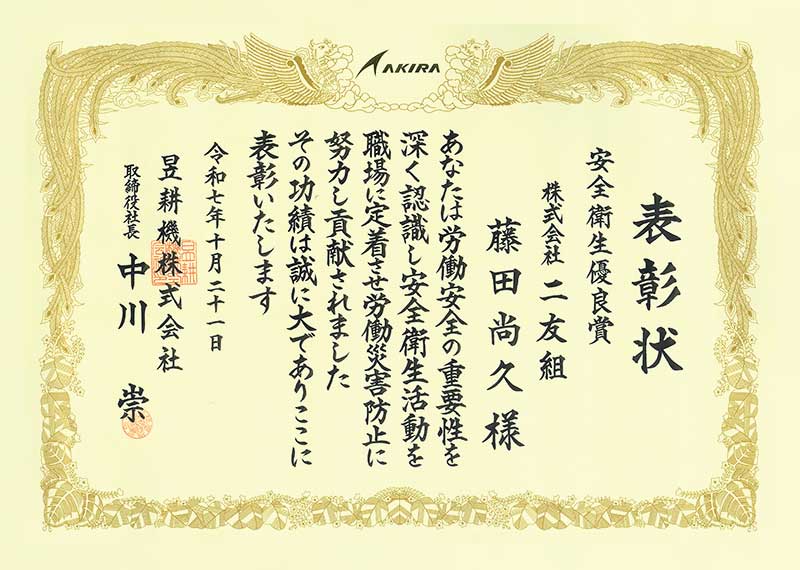 AKIRA
表彰状
安全衛生優良賞
株式会社 二友組
藤田尚久様
あなたは労働安全の重要性を
深く認識し安全衛生活動を
職場に定着させ労働災害防止に
努力し貢献されました
その功績は誠に大でありここに
表彰いたします
令和七年十月二十一日
昱耕機株式会社
取締役社長 中川 崇